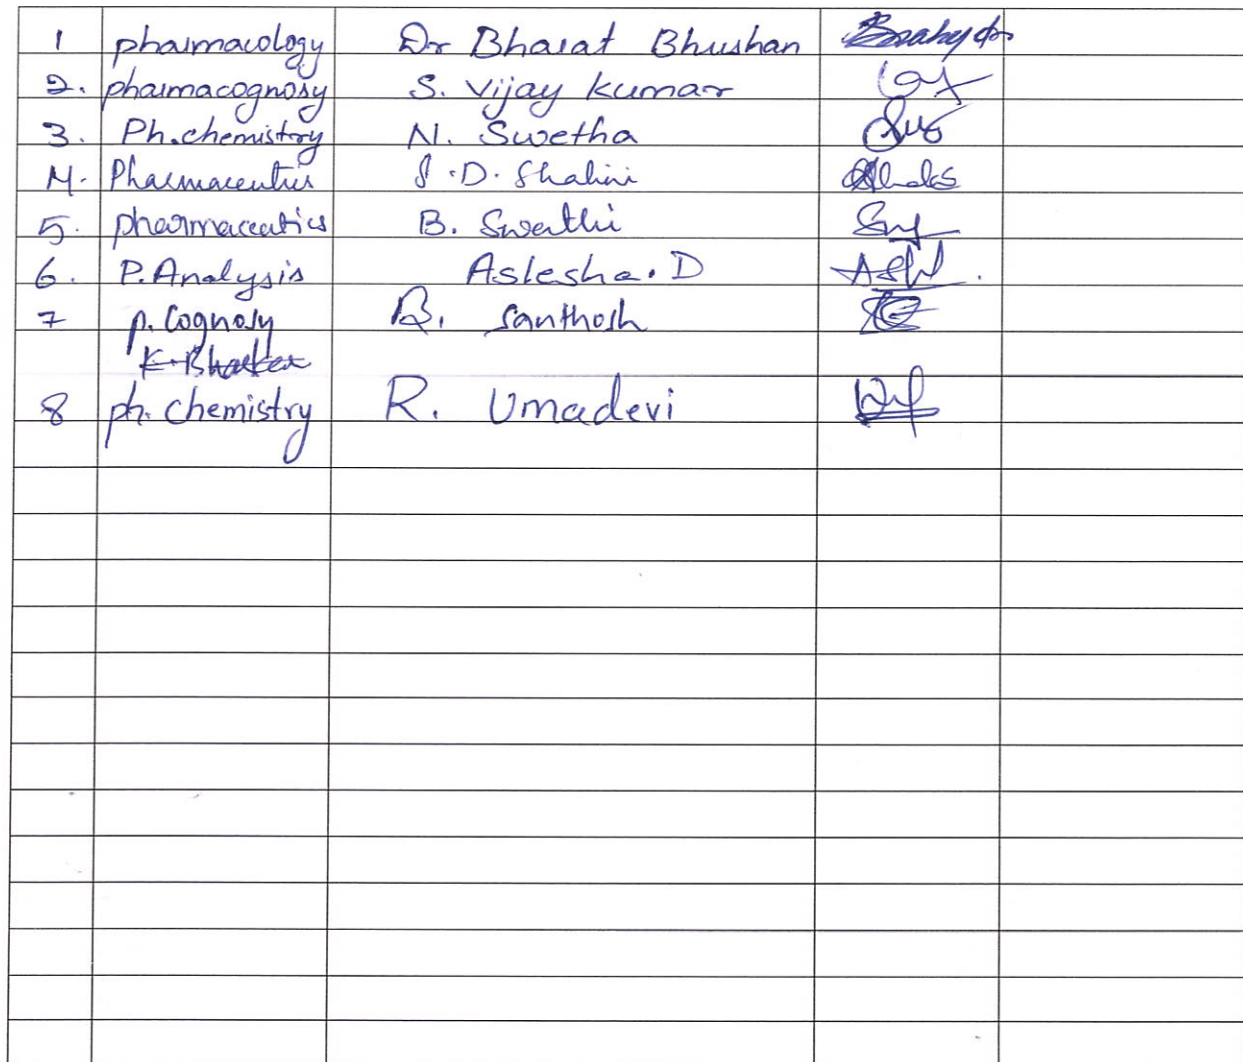 1 pharmacology Dr Bharat Bhushan
2. pharmacognosy S. Vijay kumar
3. Ph.chemistry N. Swetha
4. Pharmaceutics S.D. Shalini
5. pharmaceutics B. Swathi
6. P. Analysis Aslesha. D
7 p. Cognosy B. Santhosh
K. Bhasker
8 ph. chemistry R. Umadevi